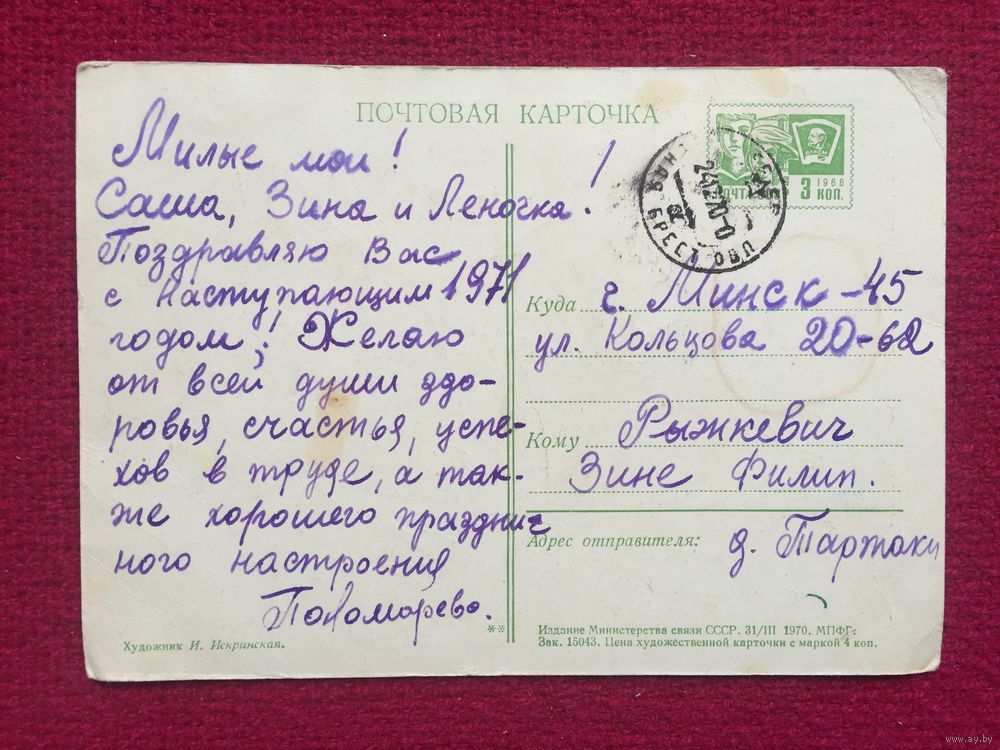 ПОЧТОВАЯ КАРТОЧКА
Милые мои!
Саша, Зина и Леночка!
Поздравляю Вас
с наступающим 1971
годом! Желаю
от всей души здо-
ровья, счастья, успе-
хов в труде, а так-
же хорошего празднич
ного настроения
Художник И. Искринская.
**
ВЛКСМ
ПОЧТА
1966
3 КОП.
БРЕСТ ОБЛ
Куда г. Минск-45
ул. Кольцова 20-62
Кому Рыжкевич
Зине Филип.
Адрес отправителя: д. Тартаки
Издание Министерства связи СССР. 31/III 1970. МПФГ.
Зак. 15043. Цена художественной карточки с маркой 4 коп.
www.ay.by